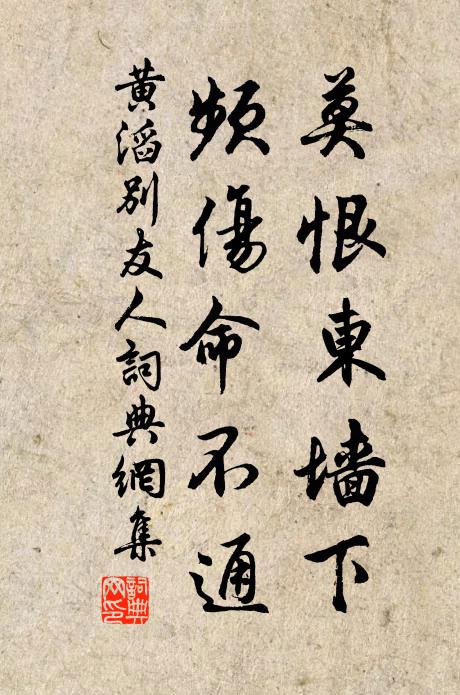 莫恨東墻下
頻傷命不通
黃滔別友人詞典網集
詞典網印